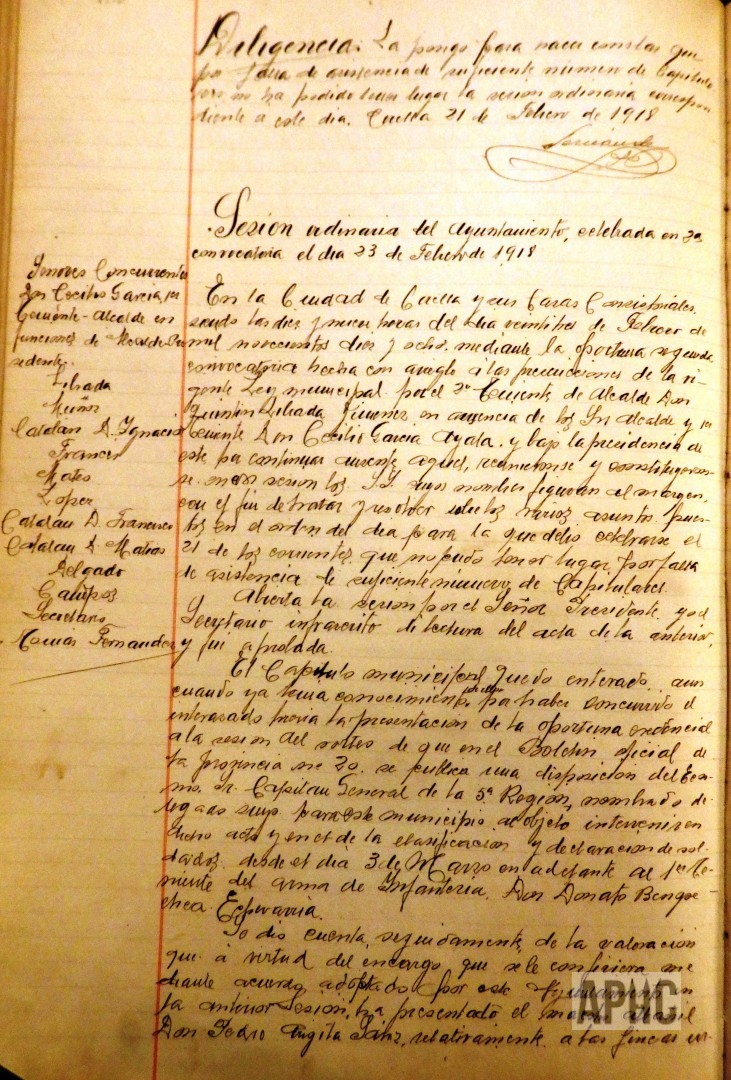 Diligencia: La pongo para hacer constar que
por falta de asistencia de suficiente número de Capitula
res no ha podido tener lugar la sesión ordinaria correspon
diente a este día. Cuella 21 de Febrero de 1918
Sesión ordinaria del Ayuntamiento, celebrada en 2a
convocatoria el día 23 de Febrero de 1918
Señores Concurrentes
Don Cecilio Garcia, 1er
Teniente-Alcalde en
funciones de Alcalde Pre
sidente.
Librada
Muñoz
Catalan D. Ignacio
Frances
Mateo
Lopez
Catalan D. Francisco
Catalan D. Mateo
Delgado
Campos
Secretario
Tomas Fernandez
En la Ciudad de Cuella y sus Casas Consistoriales
siendo las diez y nueve horas del día veintitres de Febrero de
mil novecientos diez y ocho, mediante la oportuna segunda
convocatoria hecha con arreglo a las prescripciones de la vi-
gente Ley municipal por el 2o Teniente de Alcalde Don
Quintin Librada Jimenez en ausencia de los Srs Alcalde y 1er
Teniente Don Cecilio Garcia Ayala, y bajo la presidencia de
este por continuar ausente aquel, reunieronse y constituyeron
se en sesion los SS. cuyos nombres figuran al margen,
con el fin de tratar y resolver sobre los varios asuntos pues-
tos en el orden del día para la que debió celebrarse el
21 de los corrientes, que no pudo tener lugar por falta
de asistencia de suficiente numero de Capitulares.
Abierta la sesion por el Señor Presidente, yo el
Secretario infrascrito di lectura del acta de la anterior,
y fué aprobada.
El Capitulo municipal quedó enterado, aun
cuando ya tenia conocimiento por haber concurrido el
interesado previa la presentacion de la oportuna credencial
a la sesion del sorteo de que en el Boletin oficial de
la provincia no 20. se publica una disposicion del Exce-
mo. Sr. Capitan General de la 5a Region, nombrando de-
legado suyo para este municipio al objeto intervenir en
dicho acto y en el de la clasificacion y declaracion de sol-
dados desde el dia 3 de Marzo en adelante al 1er Te-
niente del arma de Infanteria. Don Donato Bengoe-
chea Echevarria.
Se dió cuenta, seguidamente, de la valoracion
que a virtud del encargo que se le confiriera me
diante acuerdo adoptado por este Ayuntamiento en
la anterior Sesion, ha presentado el maestro albañil
Don Pedro Angita Sanz, relativamente a las fincas ur-
APHC